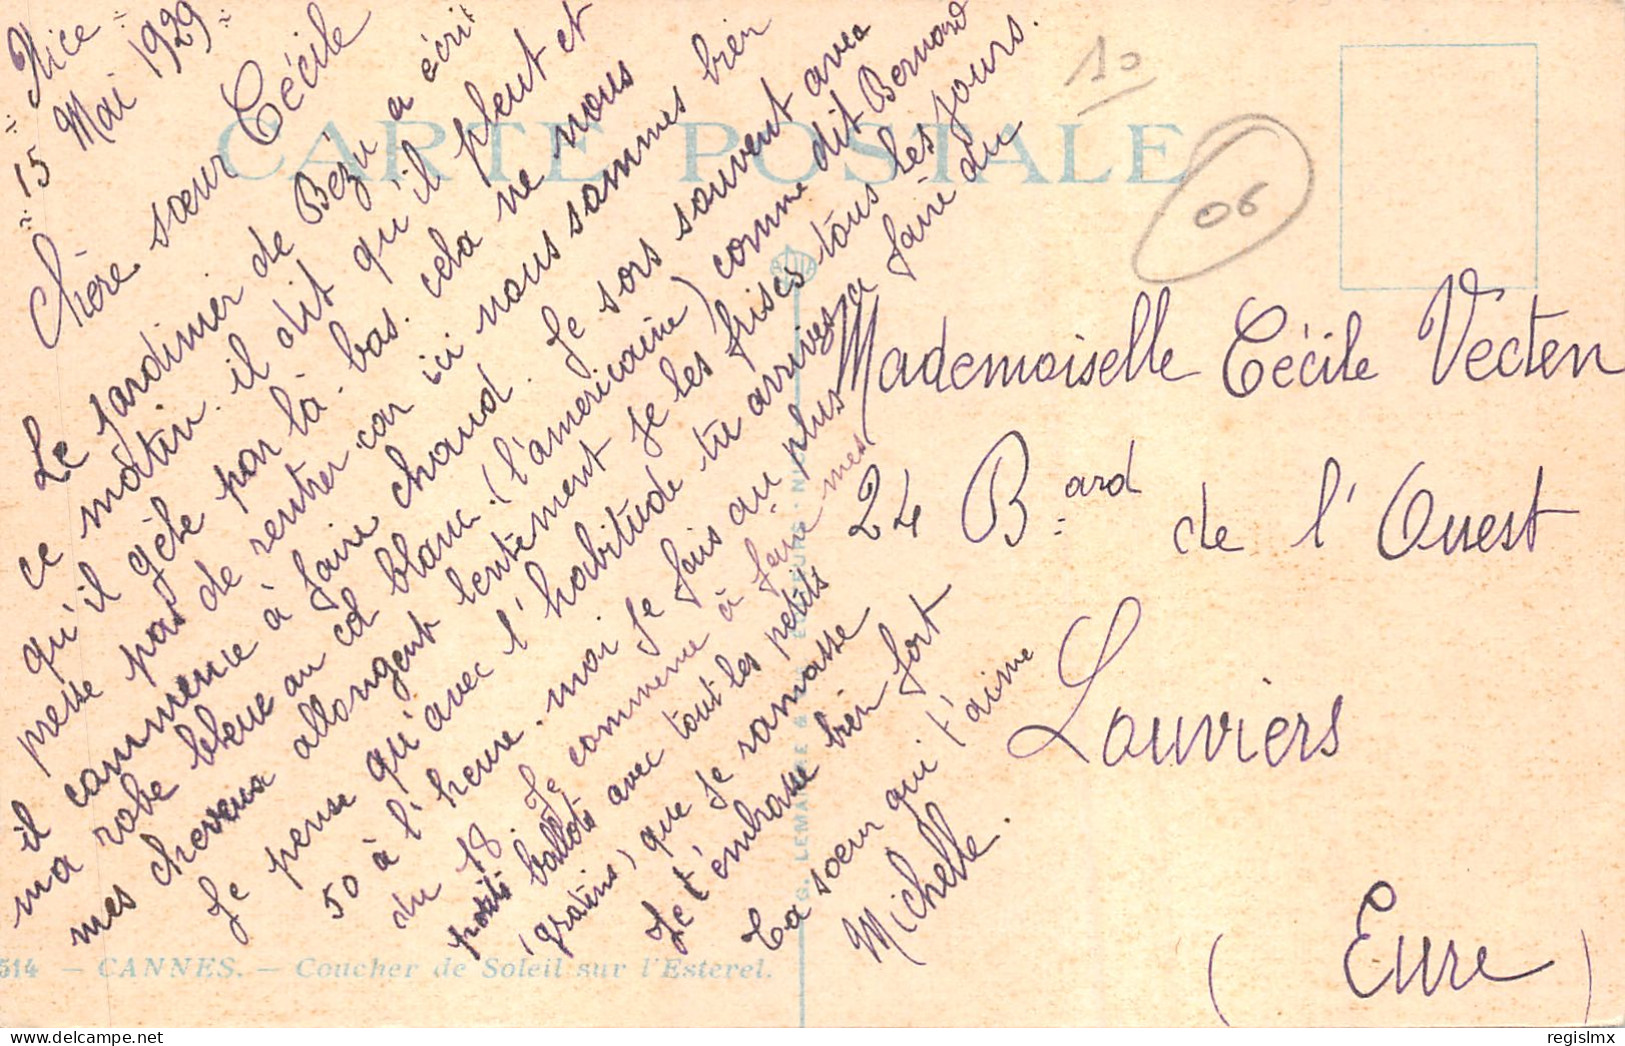 = Nice =
= 15 Mai 1929 =
Chère sœur Cécile
Le jardinier de Bézu a écrit
ce matin. il dit qu'il pleut et
qu'il gèle par là-bas. cela ne nous
presse pas de rentrer car ici nous sommes bien
il commence à faire chaud. Je sors souvent avec
ma robe bleue au col blanc. (l'américaine) comme dit Bernard
mes cheveux allongent lentement je les frises tous les jours.
Je pense qu'avec l'habitude tu arrives a faire du
50 à l'heure. moi je fais au plus
du 18. Je commence à faire mes
petits ballots avec tout les petits
(gratins) que je ramasse
Je t'embrasse bien fort
Ta soeur qui t'aime
Michelle.
CARTE POSTALE
10
06
Mademoiselle Cécile Vecten
24 B.ard de l'Ouest
Louviers
(Eure)
G. LEMAIRE & ÉDITEURS - NICE
514 — CANNES. — Coucher de Soleil sur l'Esterel.
www.delcampe.net
regislmx